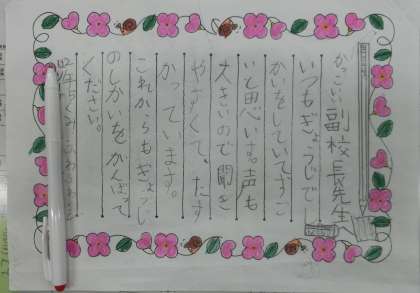 かっこいい副校長先生
いつもぎょうじで
しかいをしていてすご
いと思います。声も
大きいので聞き
やすくて、たす
かっています。
これからもぎょうじ
のしかいをがんばって
ください。